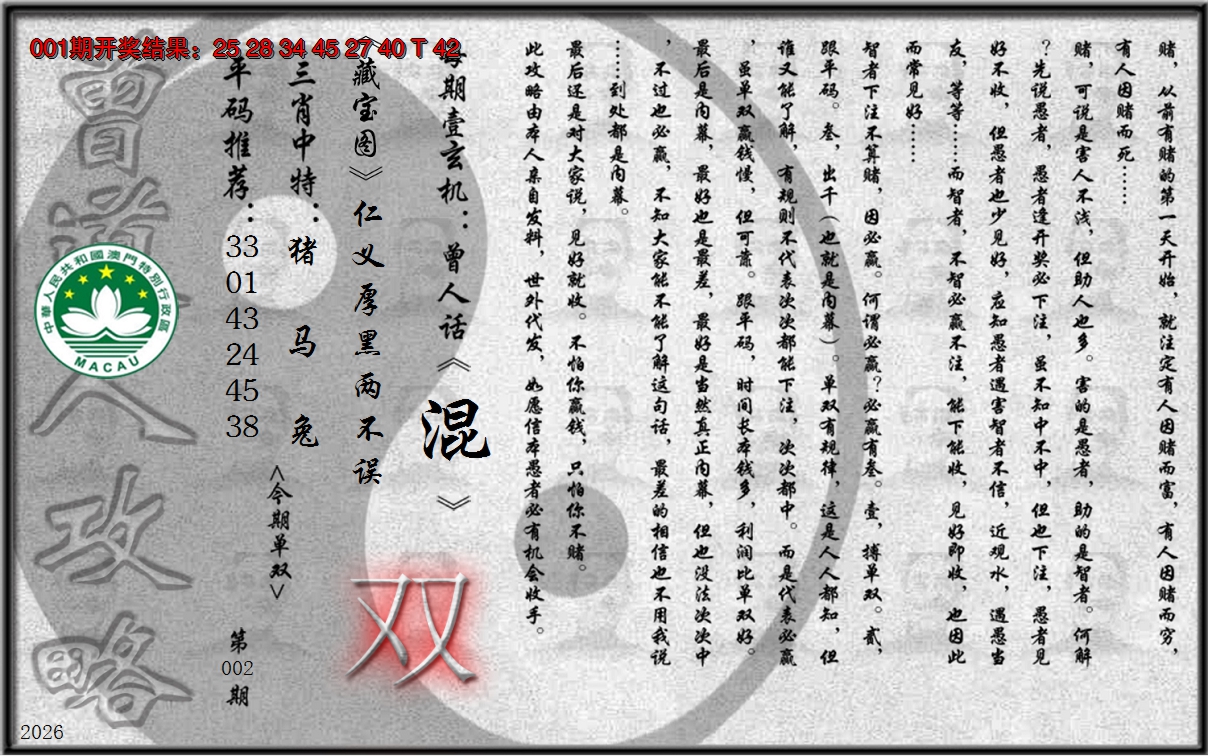 001期开奖结果：25 28 34 45 27 40 T 42
赌，从前有赌的第一天开始，就注定有人因赌而富，有人因赌而穷，
有人因赌而死……
赌，可说是害人不浅，但助人也多。害的是愚者，助的是智者。何解
？先说愚者，愚者逢开奖必下注，虽不知中不中，但也下注，愚者见
好不收，但愚者也少见好，应知愚者遇害智者不信，近观水，遇愚当
友，等等……而智者，不智必赢不注，能下能收，见好即收，也因此
而常见好……
智者下注不算赌，因必赢。何谓必赢？必赢有叁。壹，搏单双。贰，
跟平码。叁，出千（也就是内幕）。单双有规律，这是人人都知，但
谁又能了解，有规则不代表次次都能下注，次次都中。而是代表必赢
，虽单双赢钱慢，但可靠。跟平码，时间长本钱多，利润比单双好。
最后是内幕，最好也是最差，最好是当然真正内幕，但也没法次次中
，不过也必赢，不知大家能不能了解这句话，最差的相信也不用我说
……到处都是内幕。
最后还是对大家说，见好就收。不怕你赢钱，只怕你不赌。
此攻略由本人亲自发料，世外代发，如愿信本愚者必有机会收手。
每期壹玄机：曾人话《混》
《藏宝图》仁义厚黑两不误
双
三肖中特：猪 马 兔
<今期单双>
平码推荐：33 01 43 24 45 38
第002期
曾道人攻略
中華人民共和國澳門特別行政區
MACAU
2026